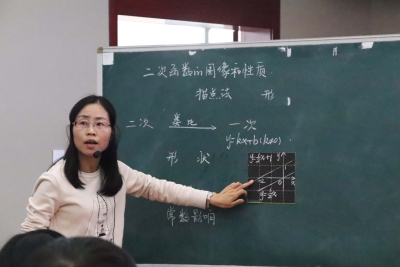 二次函数的图像和性质
描点法 形
二次 类比 一次
y=kx+b(k≠0)
形 状
常数影响